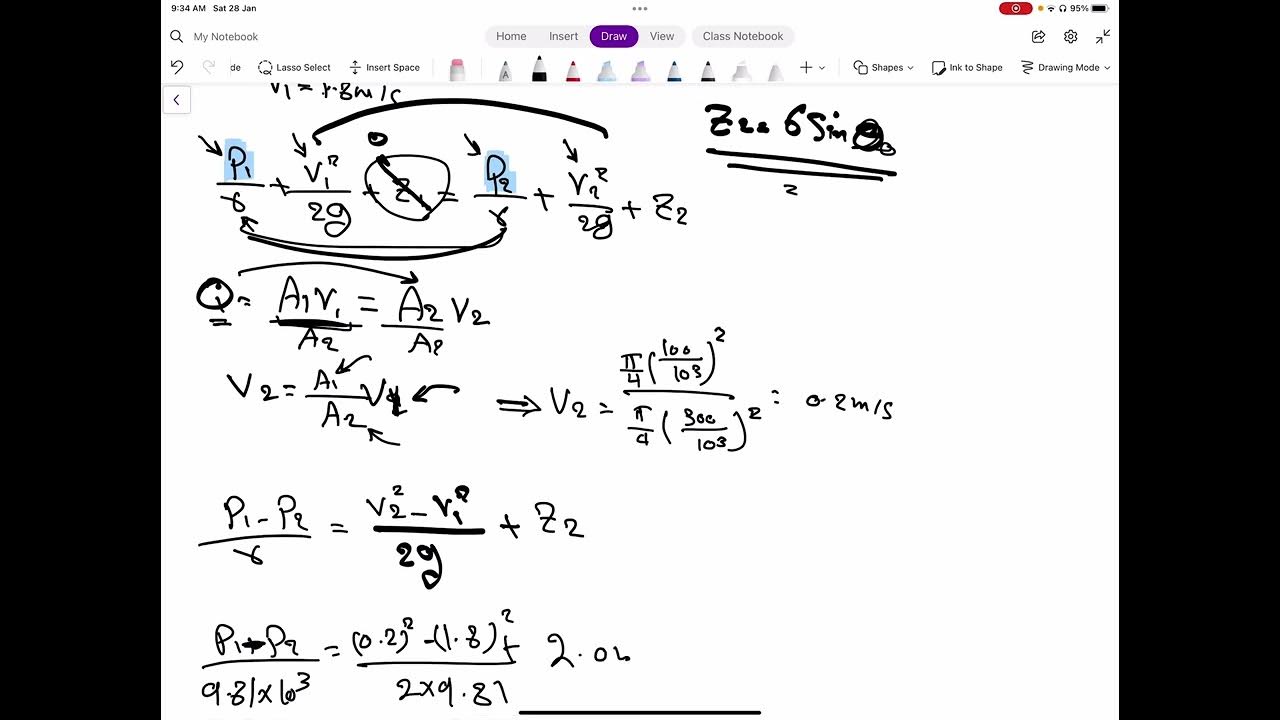 9:34 AM Sat 28 Jan
95%
My Notebook
Home Insert Draw View Class Notebook
de Lasso Select Insert Space
Shapes Ink to Shape Drawing Mode
V₁ = 1.8m/s
Z₂ = 6 Sin θ
P₁/γ + V₁²/2g + Z₁ = P₂/γ + V₂²/2g + Z₂
0
Q = A₁V₁/A₂ = A₂/A₂ V₂
V₂ = A₁/A₂ V₁ ⟹ V₂ = π/4 (100/10³)² / π/4 (300/10³)² = 0.2m/s
P₁ - P₂/γ = V₂² - V₁²/2g + Z₂
P₁ - P₂/9.81×10³ = (0.2)² - (1.8)²/2×9.81 + 2.0